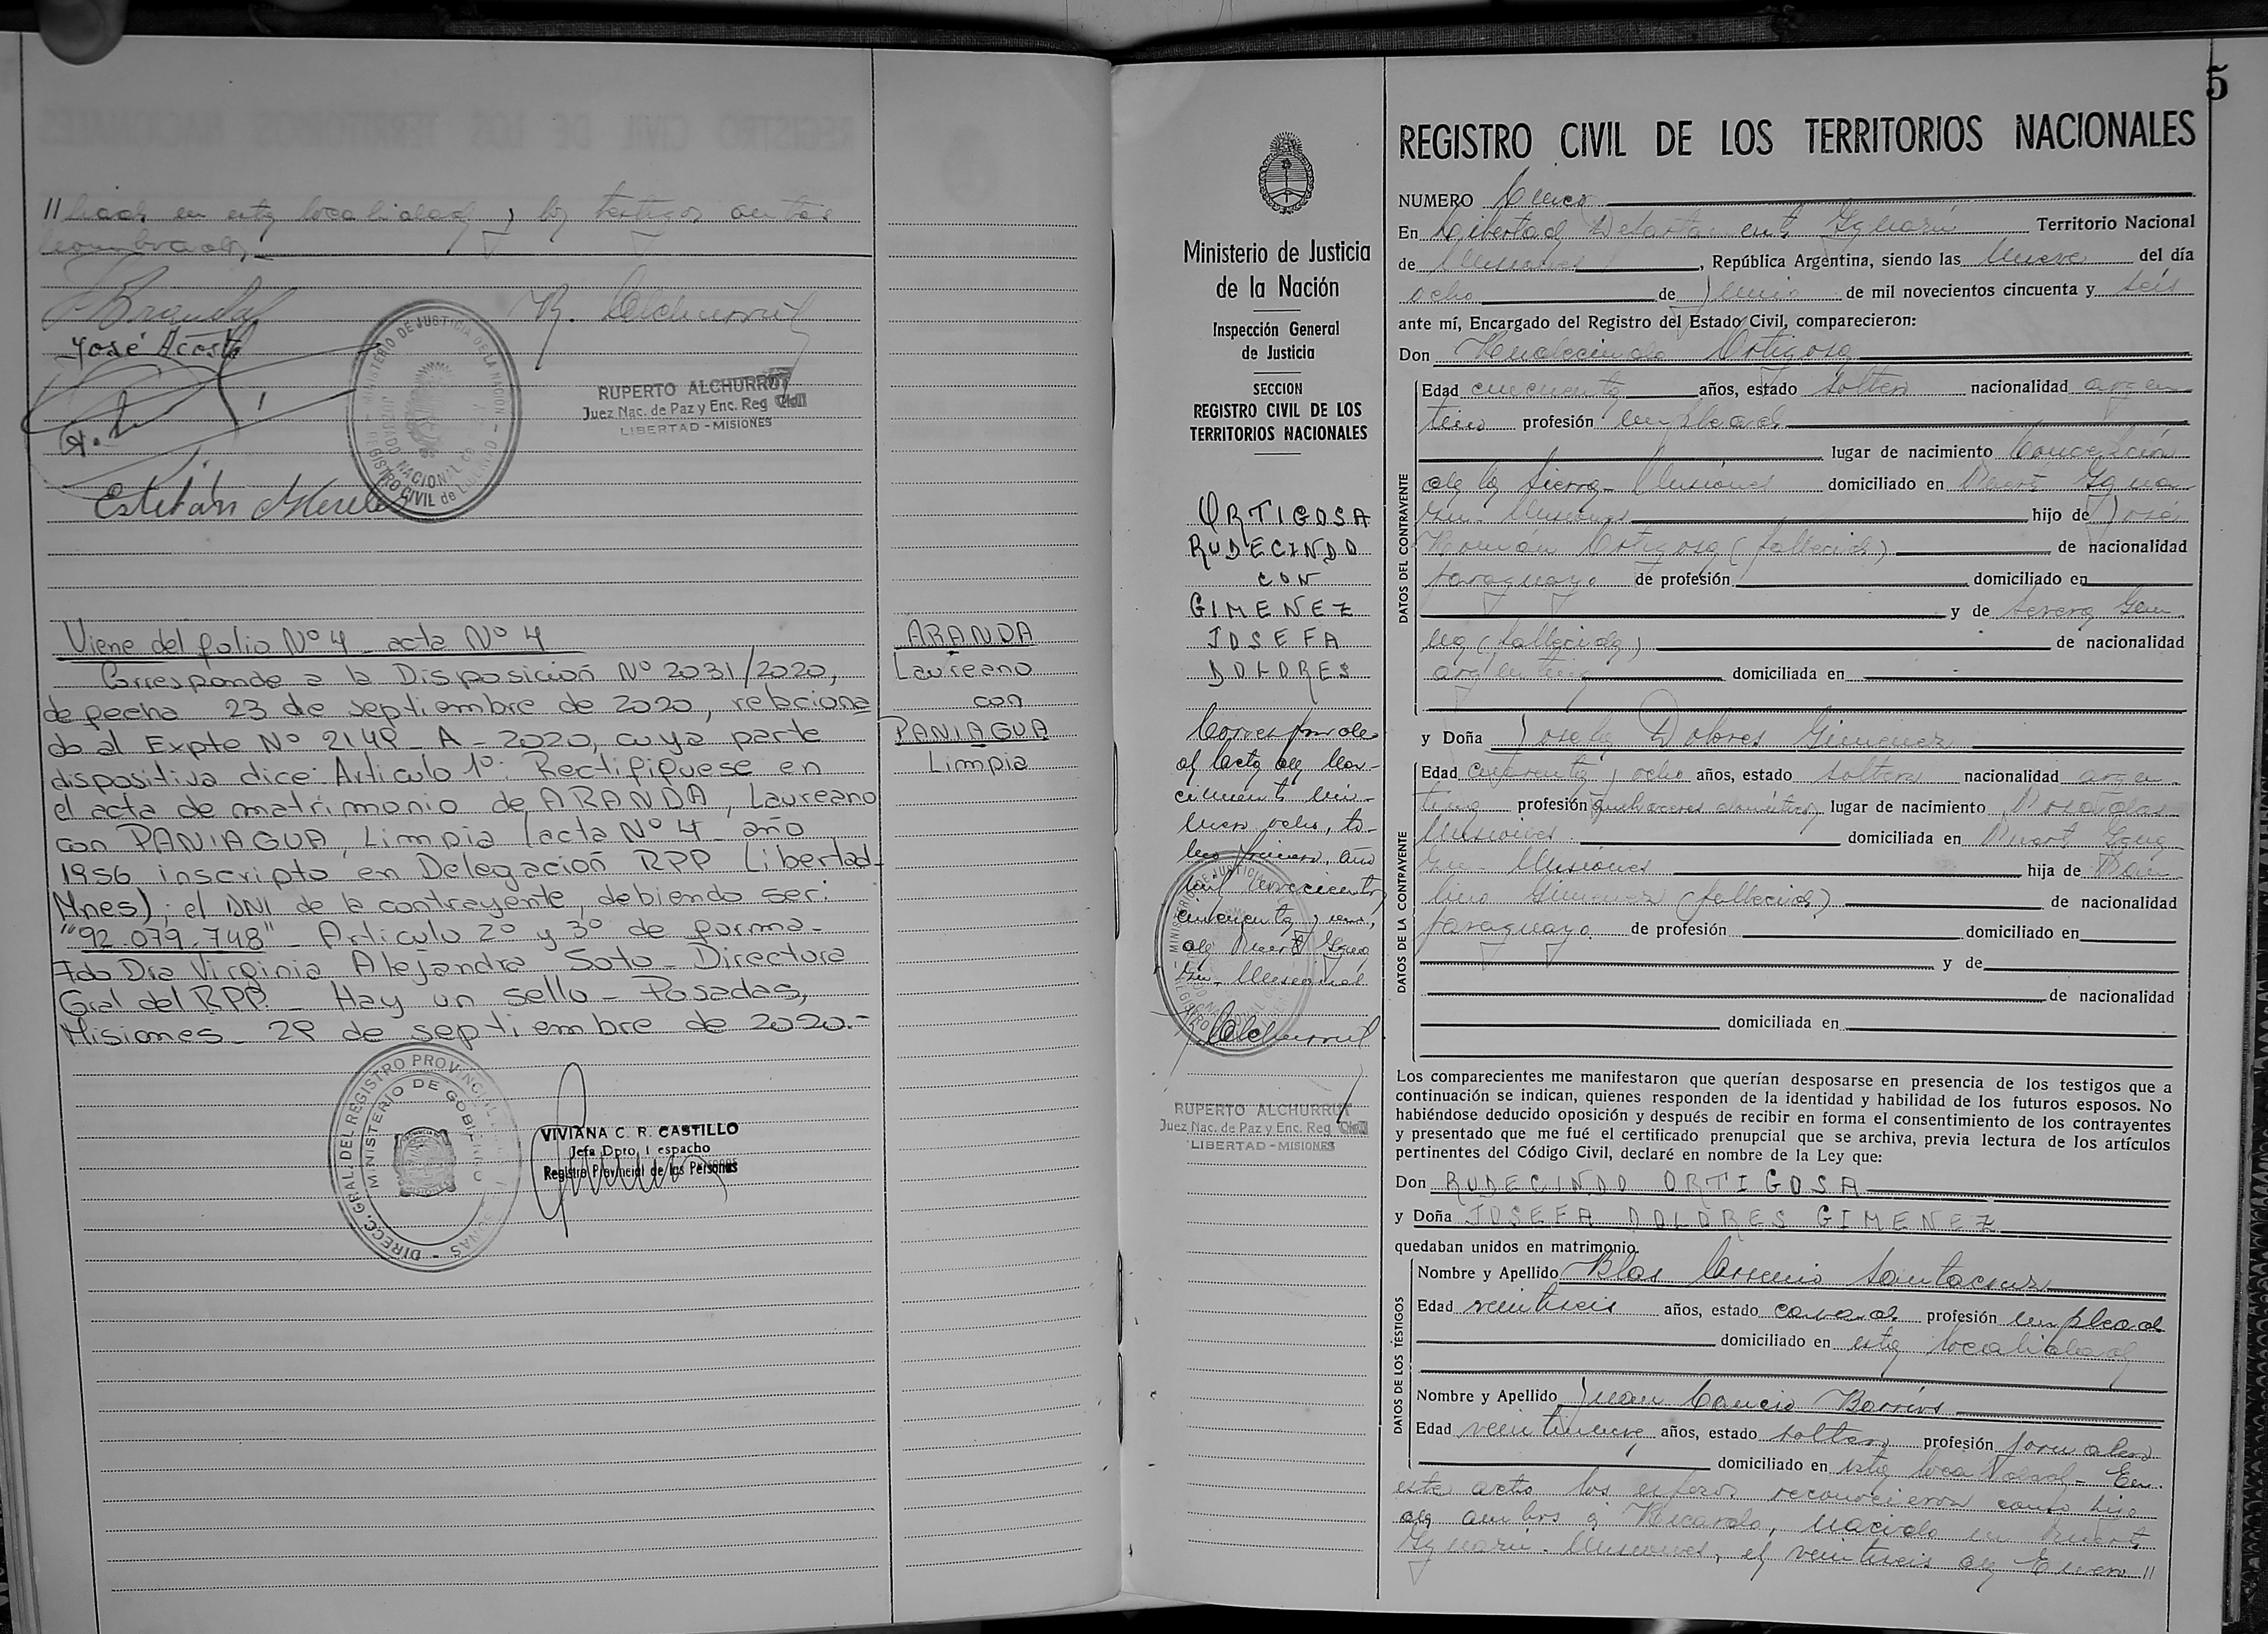 // liado en esta localidad y los testigos antes
nombrados
José Acosta
RUPERTO ALCHURRUT
Juez Nac. de Paz y Enc. Reg. Civil
LIBERTAD - MISIONES
MINISTERIO DE JUSTICIA DE LA NACION
JUZGADO NACIONAL DE PAZ
REGISTRO CIVIL de LIBERTAD
Viene del folio Nº 4 _ acta Nº 4
Corresponde a la Disposición Nº 2031/2020,
de fecha 23 de septiembre de 2020, relaciona
do al Expte Nº 2148 _ A _ 2020, cuya parte
dispositiva dice: Articulo 1º: Rectifiquese en
el acta de matrimonio de ARANDA, Laureano
con PANIAGUA, Limpia (acta Nº 4 _ año
1956 inscripto en Delegación RPP Libertad-
Mnes); el DNI de la contrayente, debiendo ser:
"92.079.748" _ Articulo 2º y 3º de forma _
Fdo Dra Virginia Alejandra Soto _ Directora
Gral del RPP. _ Hay un sello _ Posadas,
Misiones _ 28 de septiembre de 2020.-
ARANDA
Laureano
con
PANIAGUA
Limpia
DIRECC. GRAL. DEL REGISTRO PROVINCIAL
MINISTERIO DE GOBIERNO
VIVIANA C. R. CASTILLO
Jefa Dpto. Despacho
Registro Provincial de las Personas
5
Ministerio de Justicia
de la Nación
Inspección General
de Justicia
SECCION
REGISTRO CIVIL DE LOS
TERRITORIOS NACIONALES
ORTIGOSA
RUDECINDO
CON
GIMENEZ
JOSEFA
DOLORES
Corresponde
al acta de Na-
cimiento nú-
mero ocho, to-
mo primero, año
mil novecientos
cincuenta y
de Puerto Igua
zú - Misiones
RUPERTO ALCHURRUT
Juez Nac. de Paz y Enc. Reg. Civil
LIBERTAD - MISIONES
REGISTRO CIVIL DE LOS TERRITORIOS NACIONALES
NUMERO Cinco
En Libertad Departamento Iguazú Territorio Nacional
de Misiones, República Argentina, siendo las nueve del día
ocho de Junio de mil novecientos cincuenta y seis
ante mí, Encargado del Registro del Estado Civil, comparecieron:
Don Rudecindo Ortigosa
DATOS DEL CONTRAYENTE
Edad cincuenta años, estado soltero nacionalidad argen
tino profesión empleado
lugar de nacimiento Concepción
de la Sierra - Misiones domiciliado en Puerto Igua
zú - Misiones hijo de José
Román Ortigosa (fallecido) de nacionalidad
paraguayo de profesión domiciliado en
y de Severa
(fallecida) de nacionalidad
argentina domiciliada en
y Doña Josefa Dolores Gimenez
DATOS DE LA CONTRAYENTE
Edad cuarenta y ocho años, estado soltera nacionalidad argen
tina profesión quehaceres domésticos lugar de nacimiento Posadas
Misiones domiciliada en Puerto Igua
zú - Misiones hija de
Gimenez (fallecido) de nacionalidad
paraguayo de profesión domiciliado en
y de
de nacionalidad
domiciliada en
Los comparecientes me manifestaron que querían desposarse en presencia de los testigos que a
continuación se indican, quienes responden de la identidad y habilidad de los futuros esposos. No
habiéndose deducido oposición y después de recibir en forma el consentimiento de los contrayentes
y presentado que me fué el certificado prenupcial que se archiva, previa lectura de los artículos
pertinentes del Código Civil, declaré en nombre de la Ley que:
Don RUDECINDO ORTIGOSA
y Doña JOSEFA DOLORES GIMENEZ
quedaban unidos en matrimonio.
DATOS DE LOS TESTIGOS
Nombre y Apellido Blas Santacruz
Edad veintiseis años, estado casado profesión empleado
domiciliado en esta localidad
Nombre y Apellido Juan Cancio Barrios
Edad veintinueve años, estado soltero profesión jornalero
domiciliado en esta localidad - En
este acto los esposos reconocieron como hijo
de ambos a Ricardo, nacido en Puerto
Iguazú - Misiones, el veintiseis de Enero //